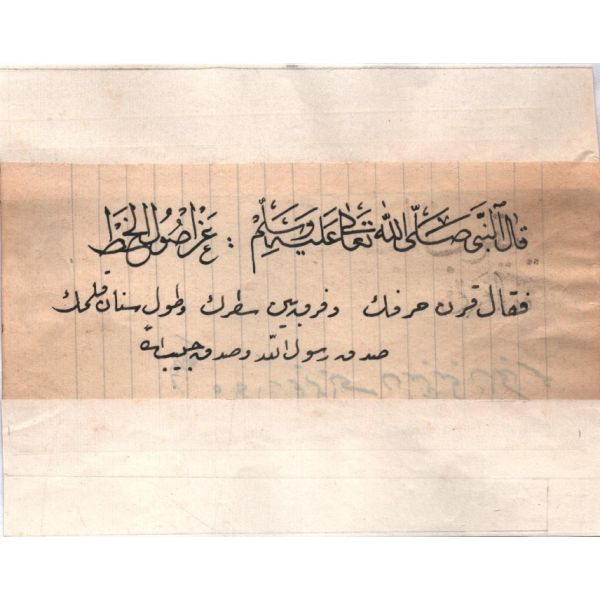 قال النبى صَلَّى الله تعالى عليه وسلم : عَنْ اصول الخط
فقال قرن حرفك وفرق بين سطرك وطول سنان قلمك
صدق رسول الله وصدق حبيب الله